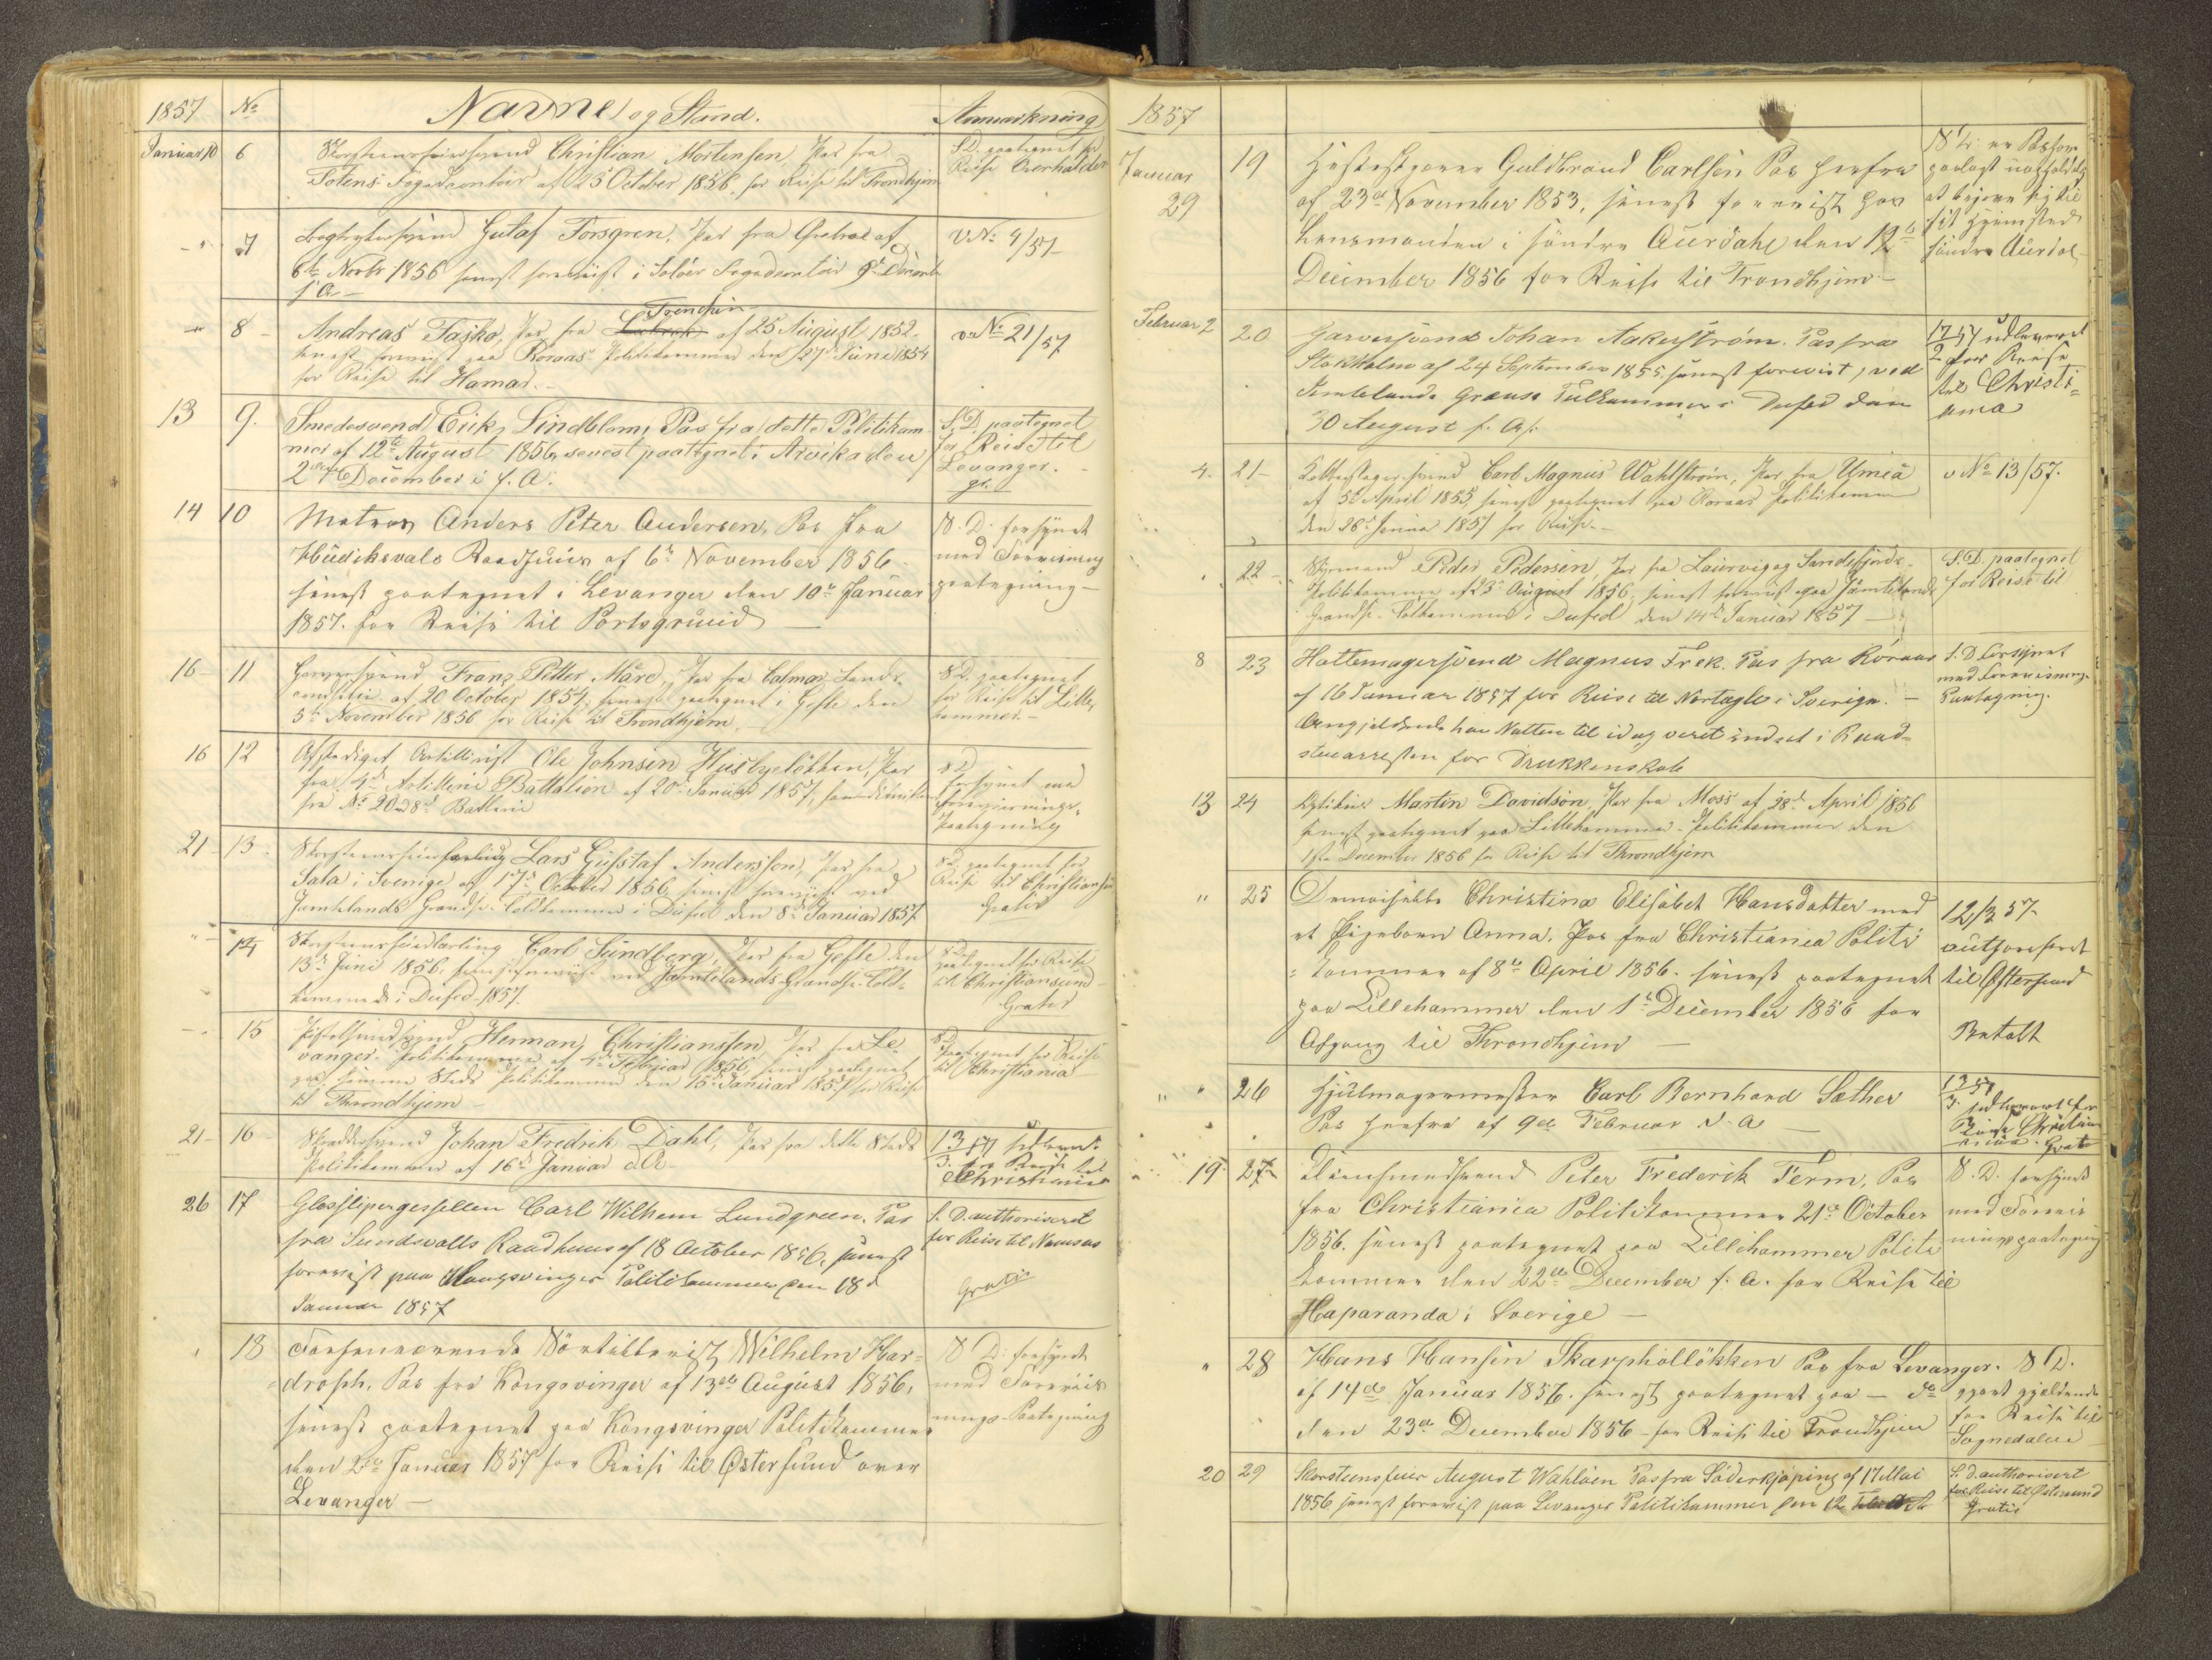 1857 No Navne og Stand. Anmærkning
Januar 10 6 Skorsteensfeiersvend Christian Mortensen, Pas fra
Totens Fogedcontoir af 25 October 1856, for Reise til Trondhjem
S.D. paategnet for
Reise Overhalden
-"- 7 Bogtrykersvend Gustaf Forsgren, Pas fra Örebroe af
6te Novbr 1856 senest foreviist i Solöer Fogedcontoir 9de Decembr
f. A.
V No 4/57
-"- 8 - Andreas Fajko, Pas fra Trenchin af 25 August 1852
senest foreviist paa Roraas Politikammer den 27de Juni 1854
for Reise til Hamar.
vu No 21/57
13 9. Smedesvend Erik Lindblom, Pas fra dette Politikam-
mer af 12te August 1856, senest paategnet i Arvika den
2den December i f. A.
S.D. paategnet
for Reise til
Levanger.
gr.
14 10 Matros Anders Peter Andersen, Pas fra
Hudiksvals Raadhuus af 6te November 1856
senest paategnet i Levanger den 10de Januar
1857. for Reise til Porsgrund
S. D. forsynet
med Forevisnings
paategning -
16 - 11 Garversvend Franz Petter Måre, Pas fra Calmar Lands-
cancellie af 20 October 1854, senest paategnet i Gefle den
5te November 1856 for Reise til Trondhjem.
S D. paategnet
for Reise til Lille-
hammer. -
16 12 Afskediget Artillerist Ole Johnsen Husbyeløkken, Pas
fra 4de Artilleri Battalion af 20de Januar 1857,
fra No 20 8de Batteri
S D
forsynet med
Forevisnings-
Paategning
21 - 13 - Skorsteensfeierlærling Lars Gustaf Andersson, Pas fra
Sala i Sverige af 17de October 1856, senest foreviist ved
Jemtelands Grændse-Toldkammer i Dufed den 8de Januar 1857
S D. paategnet for
Reise til Christiansund
Gratis
"- 14 Skorsteensfeierlærling Carl Sundberg, Pas fra Gefle den
13de Juni 1856, senest foreviist ved Jemtelands Grændse-Told-
kammer i Dufed 1857.
S D.
paategnet for Reise
til Christiansund
Gratis
-"- 15 Herman Christianssen, Pas fra Le-
vanger Politikammer af 4de Februar 1856, senest paategnet
paa samme Steds Politikammer den 15de Januar 1857 for Reise
til Throndhjem
S D
Paategnet for Reise
til Christiania
21 - 16 - Skreddersvend Johan Fredrik Dahl, Pas fra dette Steds
Politikammer af 16de Januar d. A.
13/3 57 udleveret
for Reise til
Christiania
26 17 Glassslipergesellen Carl Wilhem Lundgreen. Pas
fra Sundsvalls Raadhuus af 18 October 1856, senest
forevist paa Kongsvinger Politikammer den 18d
Januar 1857
S. D. authoriseret
for Reise til Namsos
Gratis
" 18 Forhenværende Artillerist Wilhelm Har-
drosch, Pas fra Kongsvinger af 13de August 1856,
senest paategnet paa Kongsvinger Politikammer
den 2de Januar 1857 for Reise til Østersund over
Levanger -
S D. forsynet
med Foreviis-
nings-Paategning
1857
Januar
29
19 Guldbrand Carlsen Pas herfra
af 23de November 1853, senest foreviist hos
Lensmanden i søndre Aurdahl den 12te
December 1856 for Reise til Trondhjem -
S D: er Passet
paalagt
at begive sig til
sit Hjemsted
søndre Aurdal
Februar 2 20 Garversvend Johan Aakerström. Pas fra
Stokholm af 24 September 1855, senest forevist, ved
Jemtelands Grænse Tulkammer i Dufed den
30 August f. A.
17/2 57 udleveret
for Reise
til Christi-
ania
4. 21 - Carl Magnus Wahlström, Pas fra Umeå
af 5te April 1855, senest paategnet paa Roraas Politikammer
den 28de Januar 1857 for Reise -
v No 13/57.
" 22 - Styrmand Peder Pedersen, Pas fra Laurvig og Sandefjords
Politikammer af 23de August 1856, senest foreviist paa Jämtelands
Grændse Toldkammer i Dufed den 14de Januar 1857 -
S.D. paategnet
for Reise til
8 23 Hattemagersvend Magnus Frek. Pas fra Röraas
af 16 Januar 1857 for Reise til Nortagle i Sverige. -
Angjeldende har Natten til idag veret indsat i Raad-
stuearresten for Drukkenskab
S. D. forsynet
med Forevisnings-
Paategning.
13 24 Optikus Martin Davidson, Pas fra Moss af 28de April 1856
senest paategnet paa Lillehammer Politikammer den
1ste December 1856 for Reise til Throndhjem
" 25 Demoiselle Christina Elisabet Hansdatter med
et Pigebarn Anna. Pas fra Christiania Politi-
kammer af 8de April 1856. senest paategnet
paa Lillehammer den 1ste December 1856 for
Afgang til Throndhjem -
12/3 57
authoriseret
til Østersund
Betalt
" 26 Hjulmagermester Carl Bernhard Sæther
Pas herfra af 9de Februar d. A. -
13/3 57
udleveret for
Reise Christi-
ania. Gratis
19 27 Peter Frederik Ferm, Pas
fra Christiania Politikammer 21de October
1856. senest paategnet paa Lillehammer Politi
kammer den 22de December f. A. for Reise til
Haparanda i Sverige -
S. D. forsynet
med Foreviis-
nings paategning
" 28 Hans Hansen Skarpholløkken Pas fra Levanger.
af 14de Januar 1856. senest paategnet paa - do
den 23de December 1856 - for Reise til Trondhjem
S D.
gjort gjeldende
for Reise til
Sognedalen
20 29 Skorsteensfeier August Wahlöen Pas fra Söderkjöping af 17 Mai
1856 senest forevist paa Levanger Politikammer den 12
S. D. authoriseret
for Reise til Østersund
Gratis